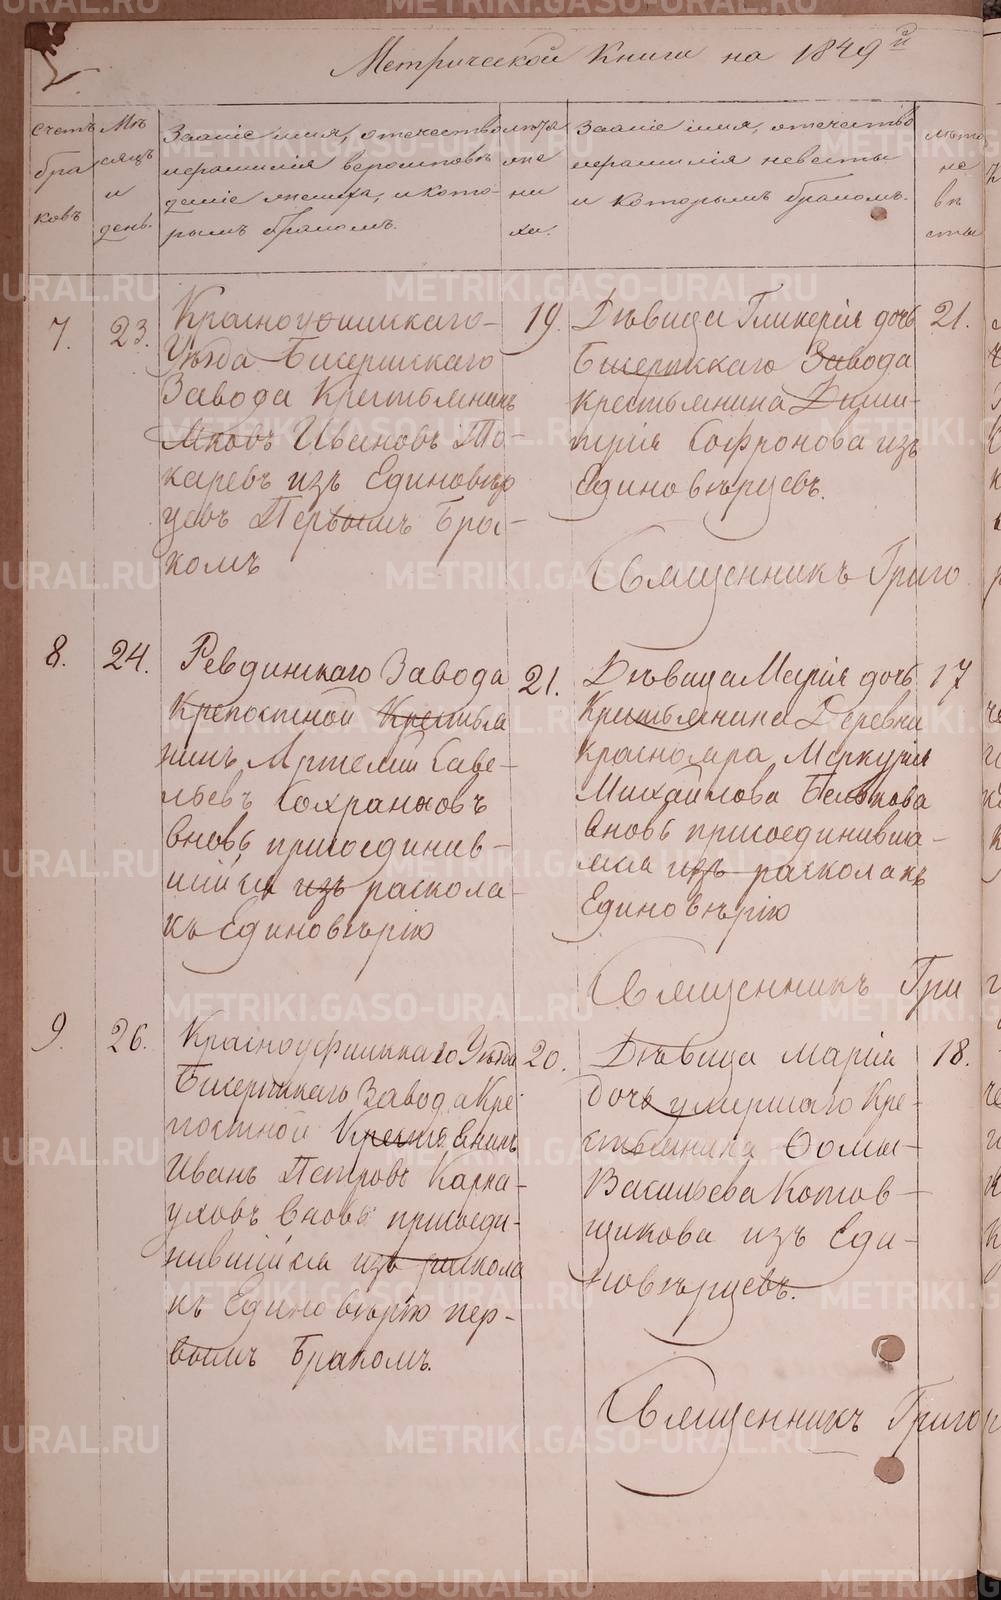 Метрической Книги на 1849й
Счетъ
бра
ковъ
Мѣ
сяцъ
и
день.
Званіе имя, отечество
и фамилія вероисповѣ
деніе жениха, и кото-
рымъ бракомъ.
лѣта
же
ни
ха.
Званіе имя, отечество
и фамилія невесты
и которымъ бракомъ.
лѣта
не
вѣ
сты
7.
23.
Красноуфимскаго
Уѣзда Бисертскаго
Завода Крестьянинъ
Яковъ Ивановъ То-
каревъ изъ Единовѣр
цевъ Первымъ Бра-
комъ
19.
Дѣвица Гликерія дочь
Бисертскаго Завода
Крестьянина Дими-
трія Софронова изъ
Единовѣрцевъ.
21.
Священникъ Григо
8.
24.
Ревдинскаго Завода
Крепостной Крестья
нинъ Артемій Саве-
льевъ Сохранновъ
вновь присоединив-
шійся изъ раскола
къ Единовѣрію
21.
Дѣвица Марія дочь
Крестьянина Деревни
Краснояра Меркурія
Михайлова Белькова
вновь присоединивша-
яся изъ раскола къ
Единовѣрію
17
Священникъ Гри
9.
26.
Красноуфимскаго Уѣзда
Бисертскаго Завода Кре
постной Крестьянинъ
Иванъ Петровъ Карна-
уховъ вновь присоеди-
нившійся изъ раскола
къ Единовѣрію пер-
вымъ Бракомъ.
20.
Дѣвица Марія
дочь умершаго Кре-
стьянина Ѳомы
Васильева Котов-
щикова изъ Еди-
новѣрцевъ.
18.
Священникъ Григо
METRIKI.GASO-URAL.RU